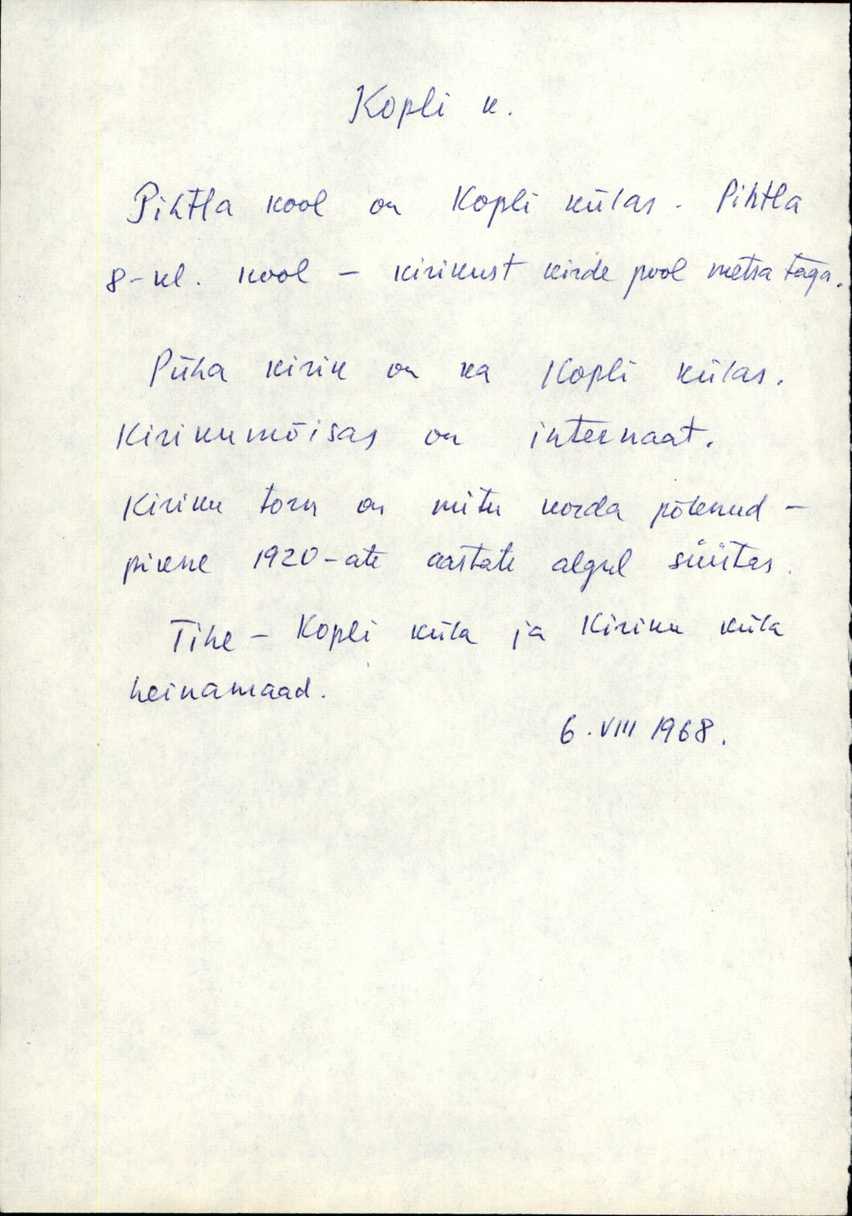 Kopli k.
Pihtla kool on Kopli külas. Pihtla
8-kl. kool – kirikust kirde pool metsa taga.
Püha kirik on ka Kopli külas.
Kirikumõisas on internaat.
Kiriku torn on mitu korda põlenud –
pikne 1920-ate aastate algul süütas.
Tihe – Kopli küla ja Kiriku küla
heinamaad.
6. VIII 1968.